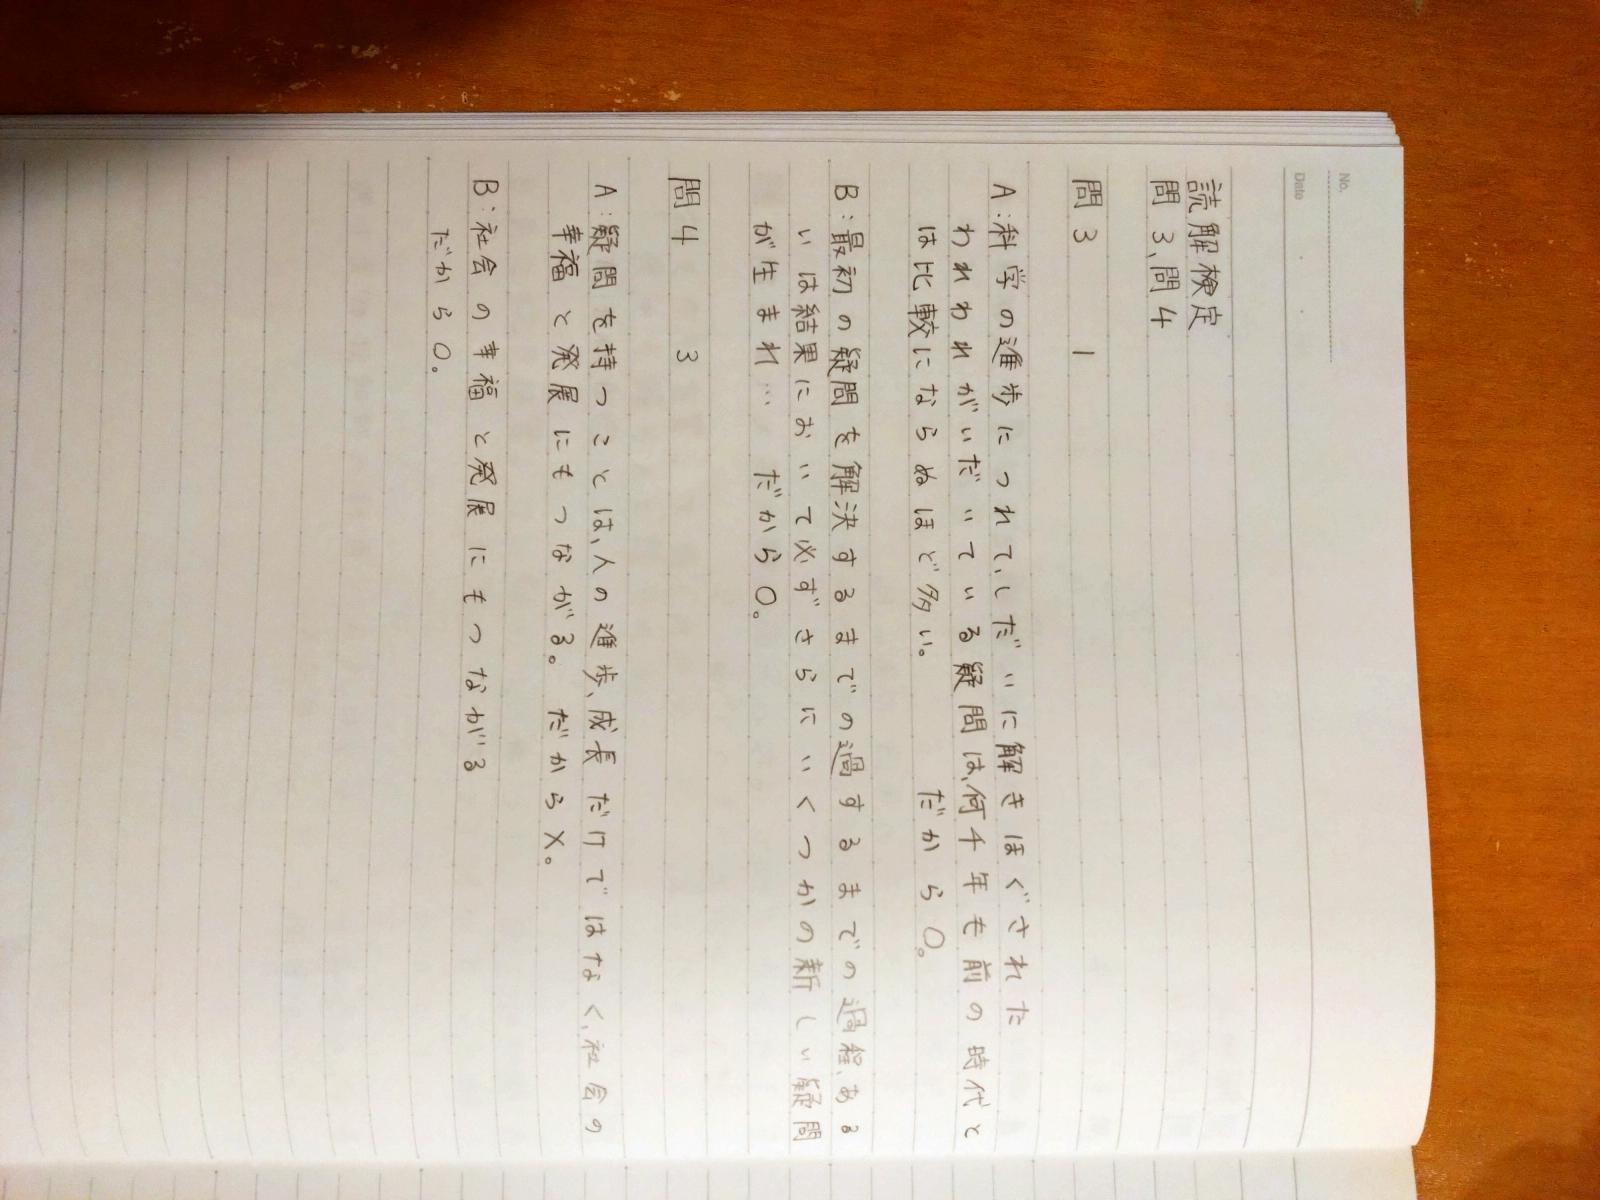 No.
Date
読解検定
問3、問4
問3 1
A:科学の進歩につれて、しだいに解きほぐされた
われわれがいだいている疑問は、何千年も前の時代と
は比較にならぬほど多い。 だから○。
B:最初の疑問を解決するまでの過するまでの過程、ある
いは結果において必ずさらにいくつかの新しい疑問
が生まれ… だから○。
問4 3
A:疑問を持つことは、人の進歩、成長だけではなく、社会の
幸福と発展にもつながる。だから×。
B:社会の幸福と発展にもつながる
だから○。